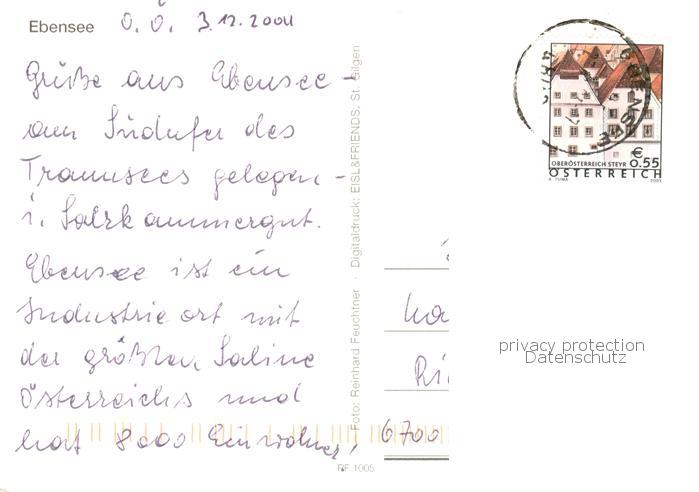 Ebensee O.Ö. 3.12.2004
Grüße aus Ebensee -
am Südufer des
Traunsees gelegen -
i. Salzkammergut.
Ebensee ist ein
Industrieort mit
der größten Saline
Österreichs und
hat 8000 Einwohner,
Foto: Reinhard Feuchtner · Digitaldruck: EISL&FRIENDS, St. Gilgen
RF 1005
EBENSEE
€
0.55
OBERÖSTERREICH STEYR
ÖSTERREICH
A. TUMA 2003
privacy protection
Datenschutz
6700